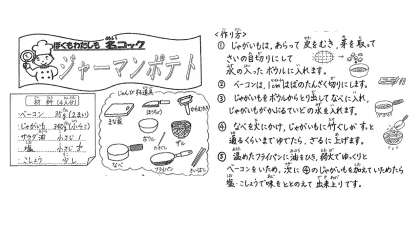 ぼくもわたしも 名コック
ジャーマンポテト
材料(4人分)
ベーコン
じゃがいも
サラダ油 小さじ1
塩 小さじ
こしょう 少し
じゅんび用具
まな板
ほうちょう
ボウル
ざる
なべ
フライパン
さいばし
<作り方>
① じゃがいもは、あらって皮をむき、芽を取って
さいの目切りにして
水の入ったボウルに入れます。
② ベーコンは、1cmはばのたんざく切りにします。
③ じゃがいもをボウルからとり出してなべに入れ、
じゃがいもがかぶるていどの水を入れます。
④ なべを火にかけ、じゃがいもに竹ぐしがすっと
通るくらいまでゆでたら、ざるに上げます。
⑤ 温めたフライパンに油をひき、弱火でゆっくりと
ベーコンをいため、次に④のじゃがいもを加えていためたら
塩・こしょうで味をととのえて出来上りです。